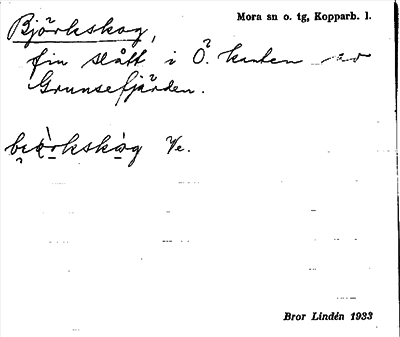 Björkskog,
Mora sn o. tg, Kopparb. l.
fin slått i Ö. kanten av
Grunsefjärden.
Bror Lindén 1933